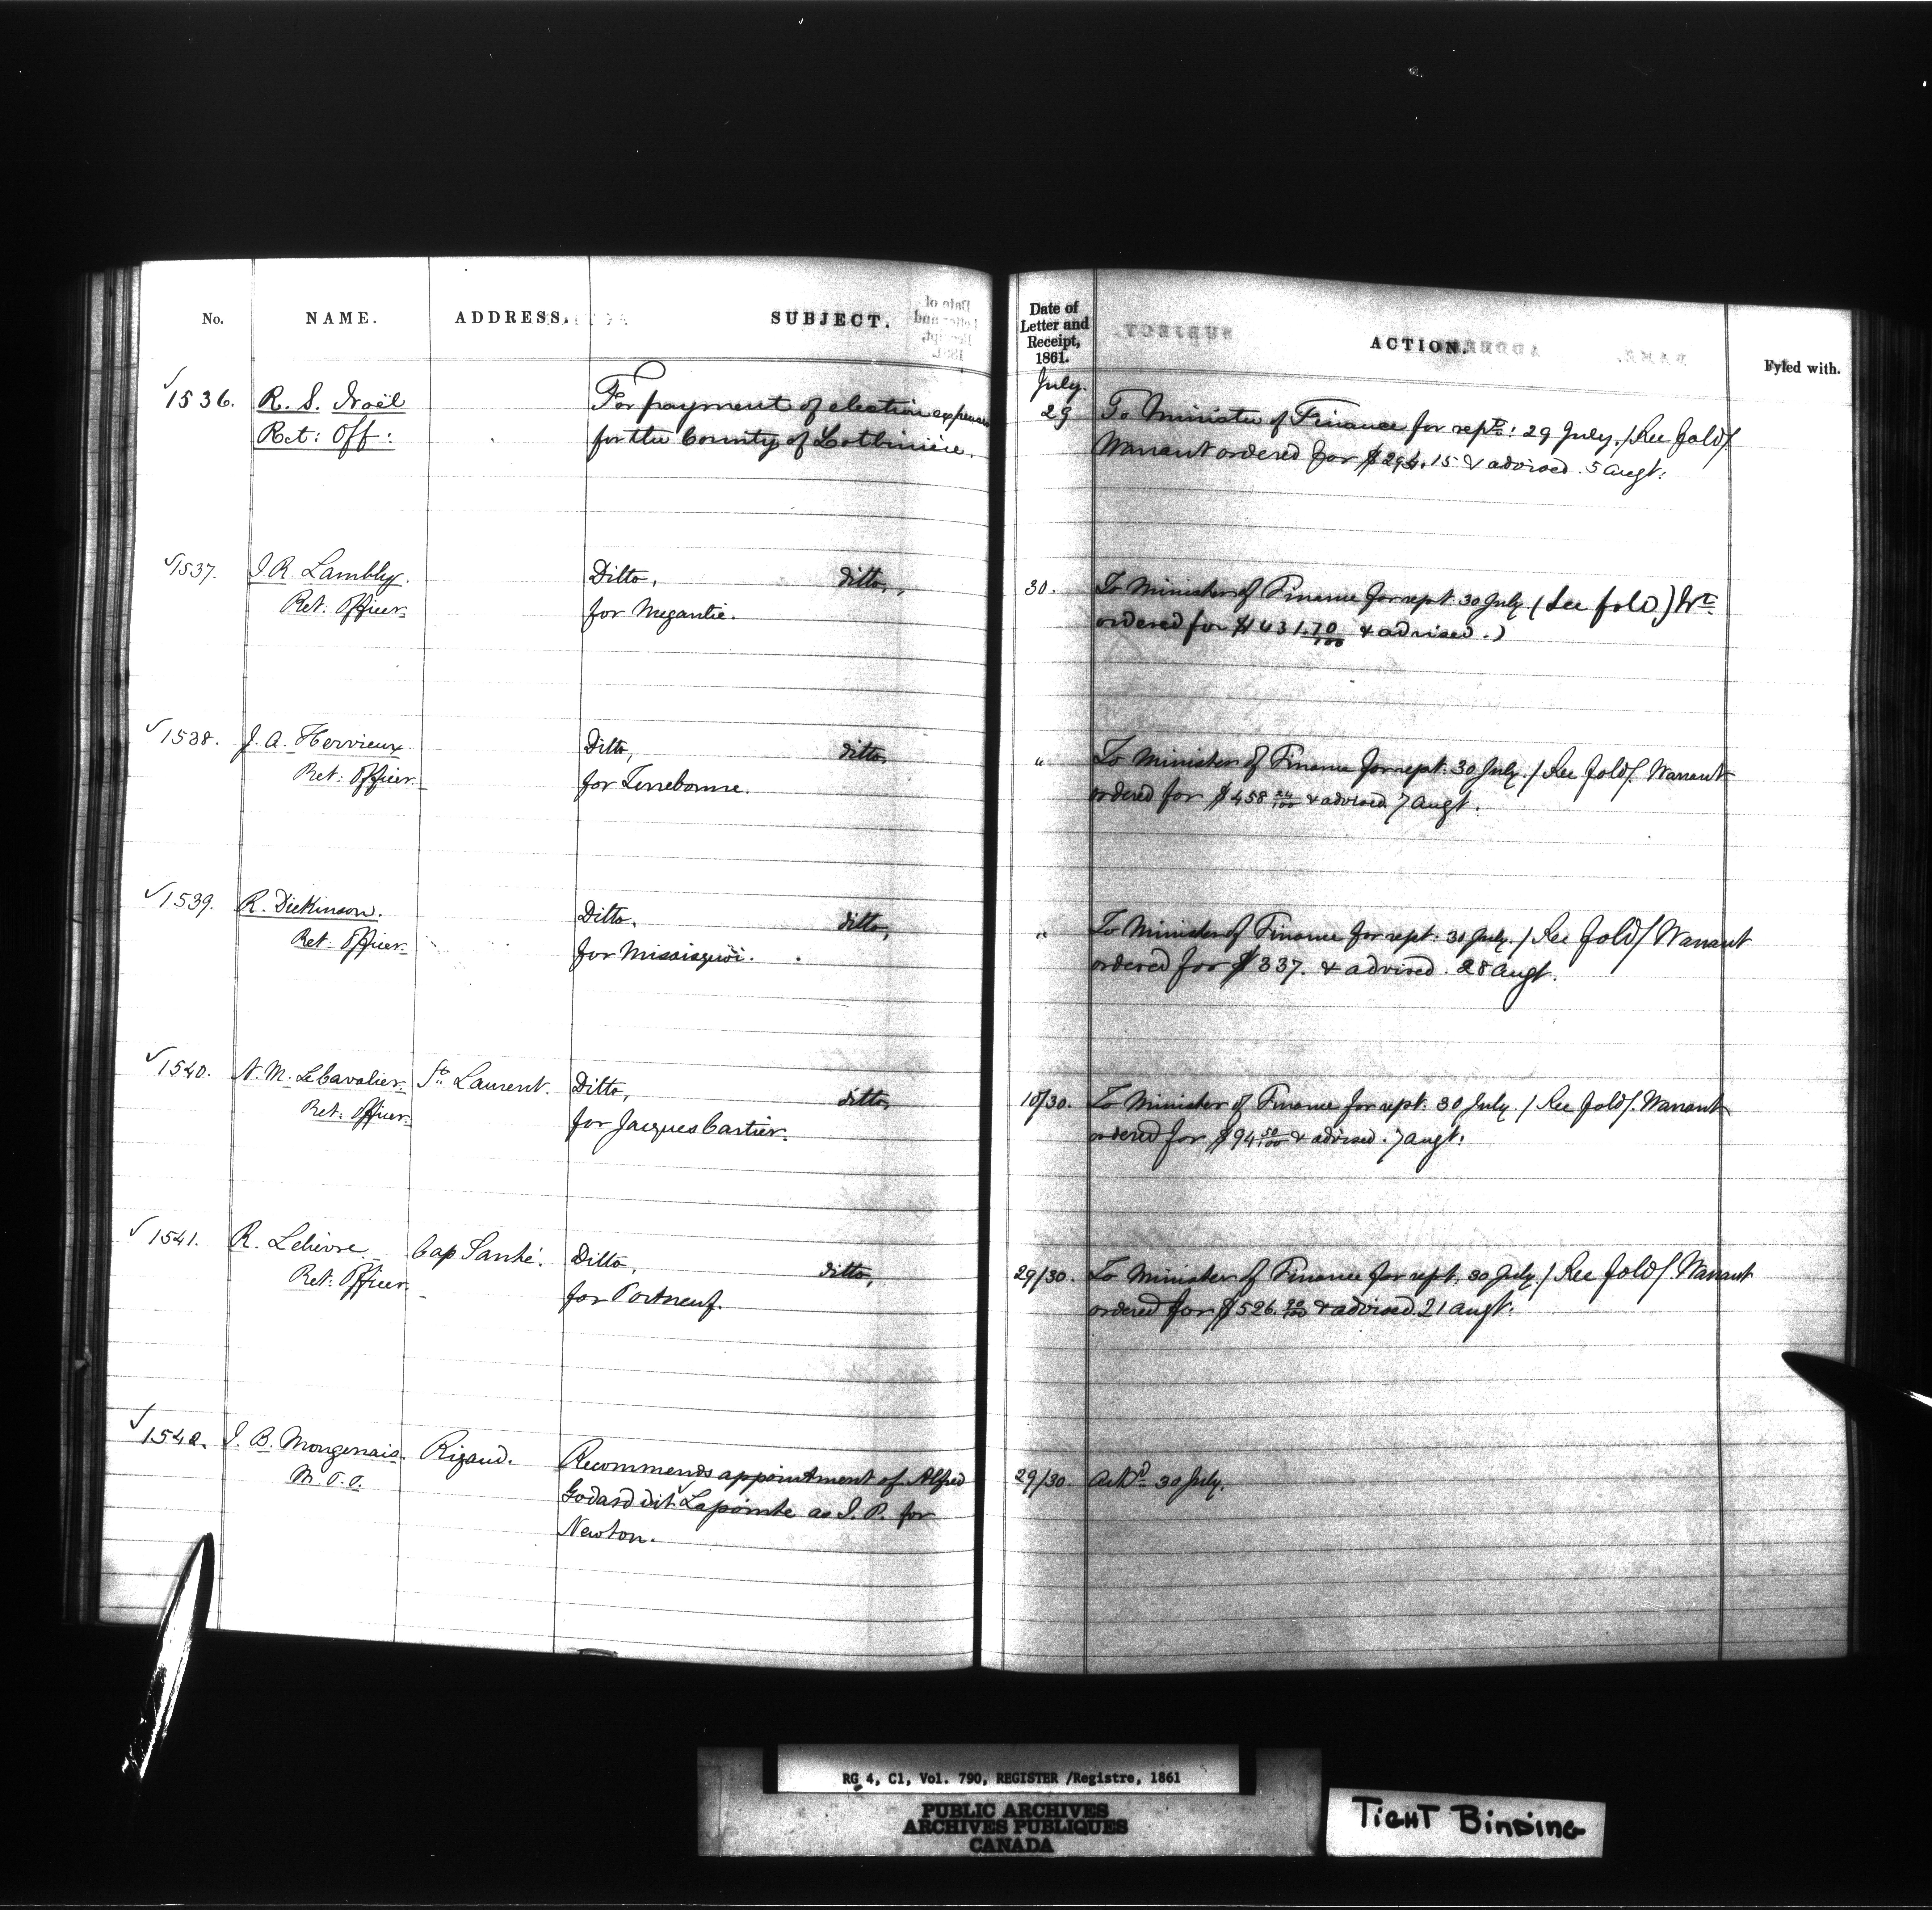 No. NAME. ADDRESS. SUBJECT.
Date of Letter and Receipt, 1861. ACTION. Fyled with.
July.
1536. R. S. Noël For payment of election expenses 29 To Minister of Finance for rept: 29 July. / See fold /
Ret: Off: for the County of Lotbinière. Warrant ordered for $294.15 & advised. 5 Augt:
1537. J. R. Lambly. Ditto, ditto, 30. To Minister of Finance for rept. 30 July (See fold) Wt
Ret: Officer. for Megantic. ordered for $431.70/100 & advised.)
1538. J. A. Hervieux Ditto, ditto, " To Minister of Finance for rept. 30 July. / See fold /. Warrant
Ret: Officer. for Terrebonne. ordered for $458 24/100 & advised 7 Augt.
1539. R. Dickinson. Ditto. ditto, " To Minister of Finance for rept. 30 July. / See fold / Warrant
Ret. Officer. for Missisquoi. ordered for $337. & advised. 28 Augt.
1540. N. M. LeCavalier. St. Laurent. Ditto, ditto, 10/30. To Minister of Finance for rept. 30 July. / See fold /. Warrant
Ret: Officer. for Jacques Cartier. ordered for $94 50/100 & advised. 7 Augt:
1541. R. Lelièvre. Cap Santé. Ditto, ditto, 29/30. To Minister of Finance for rept. 30 July. / See fold /. Warrant
Ret: Officer. for Portneuf. ordered for $526. & advised 21 Augt.
1542. J. B. Mongenais. Rigaud. Recommends appointment of Alfred 29/30. Ackd 30 July.
M.P.P. Godard dit Lapointe as J. P. for
Newton.
RG 4, C1, Vol. 790, REGISTER /Registre, 1861
PUBLIC ARCHIVES
ARCHIVES PUBLIQUES
CANADA
TIGHT BINDING